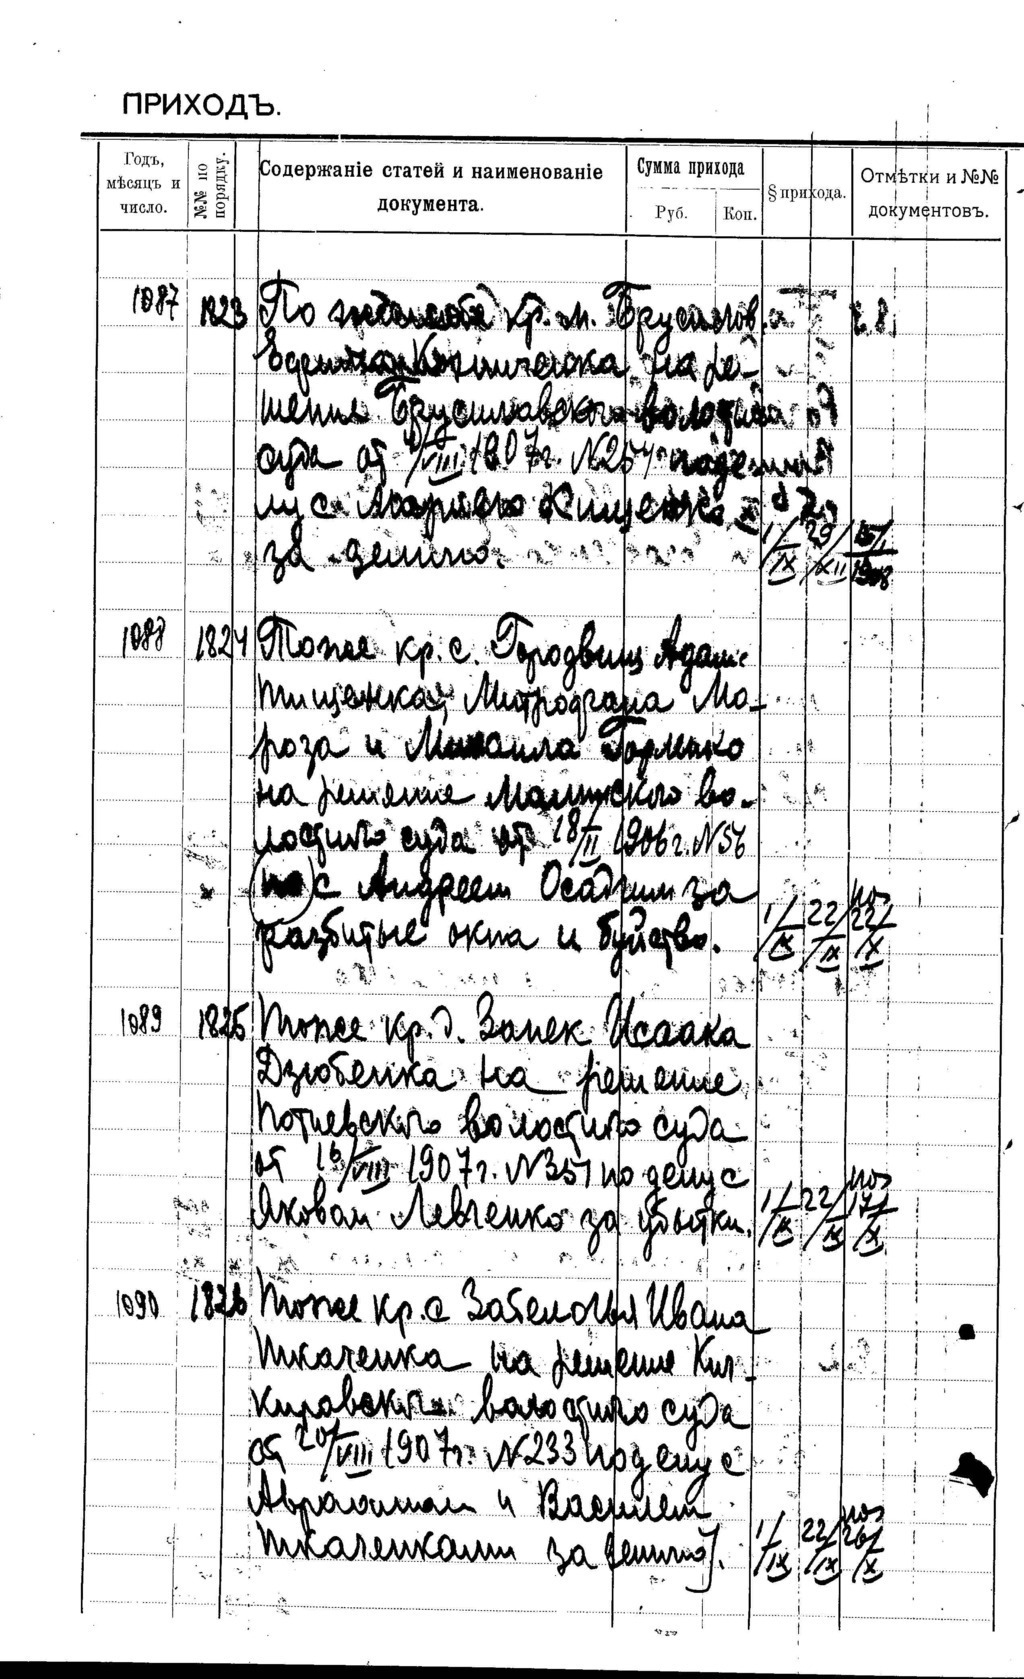 ПРИХОДЪ.
Годъ, мѣсяцъ и число.
№№ по порядку.
Содержаніе статей и наименованіе документа.
Сумма прихода
Руб.
Коп.
§ прихода.
Отмѣтки и №№ документовъ.
1087 1823 По жалобѣ кр. м. Брусилов
на ре-
шение Брусиловского волостного
суда от VIII 1907 г. N254 по делу
с Кищенко
за землю.
1/IX 29/XII 15/I 1908
1088 1824 Тоже кр. с. Городвищ Адама
Тищенка, Митрофана Мо-
роза и Михаила
на решение Малинского во-
лостного суда от 18/II 1906 г. N56
с Андреем Осадчим за
разбитые окна и буйство.
1/IX 22/IX 22/X
1089 1825 Тоже кр. д. Занек Исаака
Дзюбенка на решение
Потиевского волостного суда
от 16/VIII 1907 г. N351 по делу с
Яковом Левченко за убытки.
1/IX 22/IX 17/X
1090 1826 Тоже кр. с. Забелочья Ивана
Ткаченка на решение Кич-
кировского волостного суда
от 20/VIII 1907 г. N233 по делу с
Авраамом и Василем
Ткаченками за землю.
1/IX 22/IX 26/X